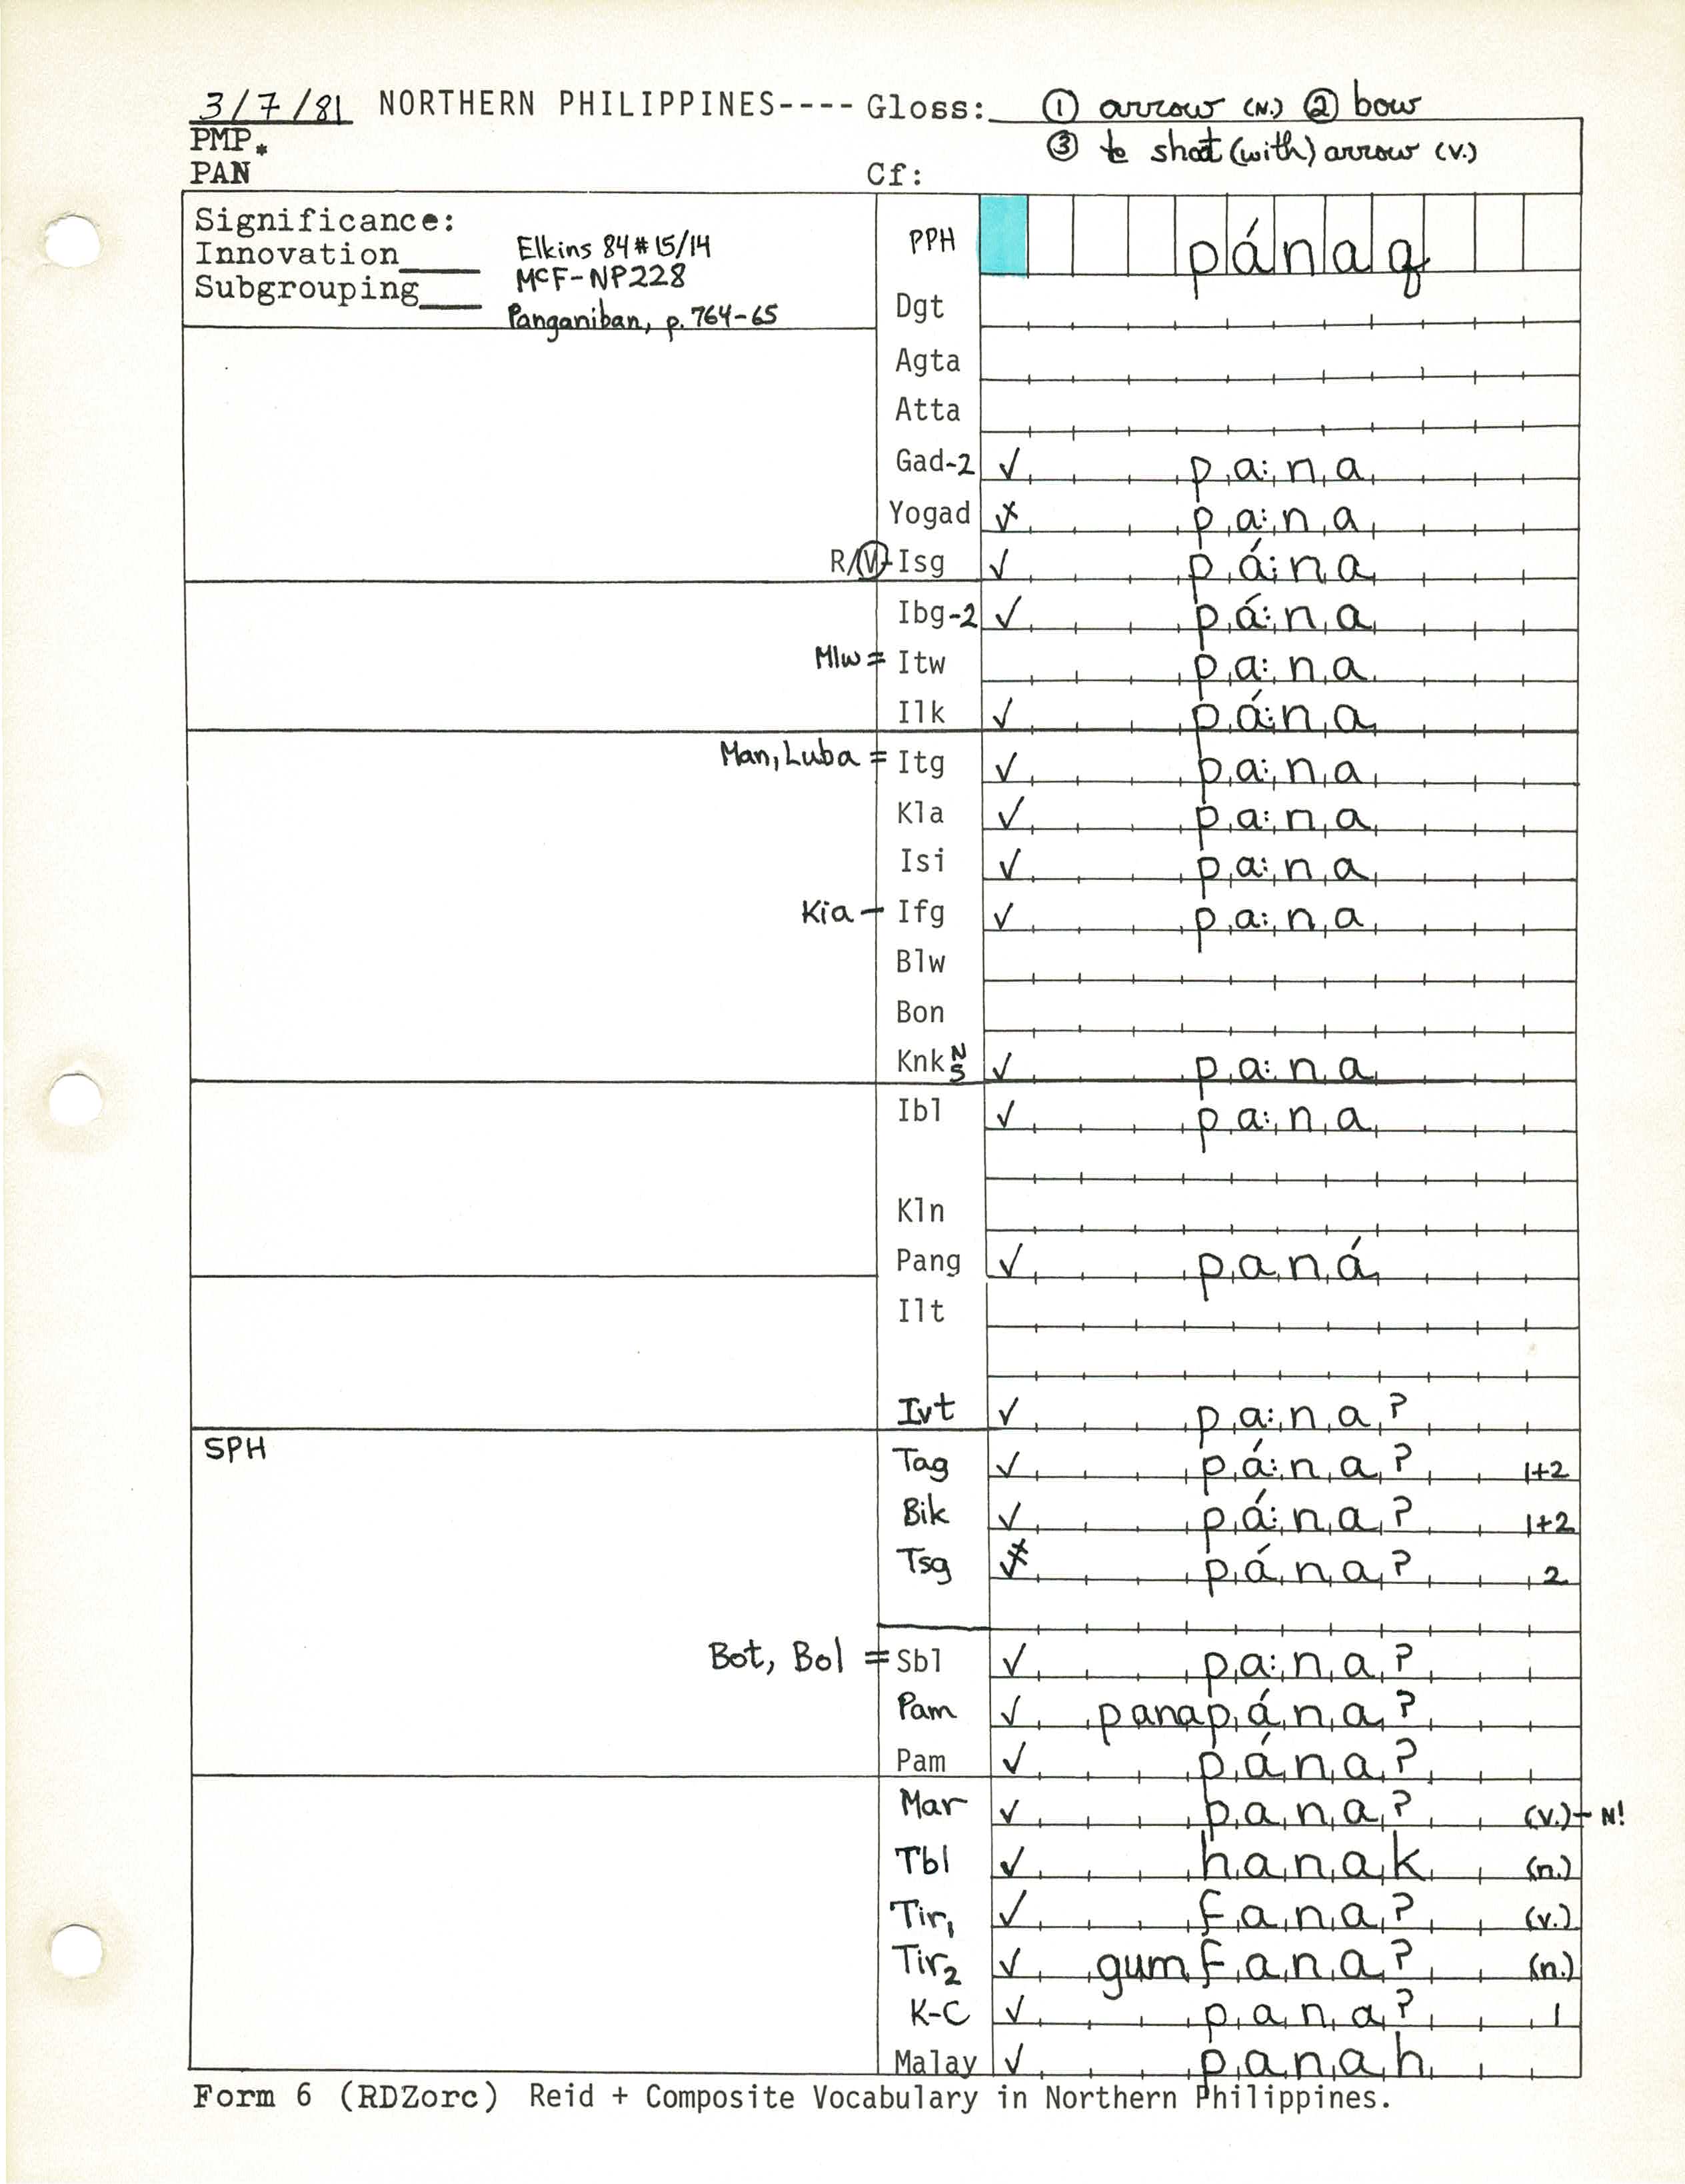 3/7/81 NORTHERN PHILIPPINES---- Gloss: ① arrow (N.) ② bow
PMP* ③ to shoot (with) arrow (v.)
PAN Cf:
Significance:
Innovation____ Elkins 84#15/14
Subgrouping____ McF-NP228
Panganiban, p. 764-65
PPH pánaq
Dgt
Agta
Atta
Gad-2 ✓ pa:na
Yogad ✓x pa:na
R/V-Isg ✓ pá:na
Ibg-2 ✓ pá:na
Mlw = Itw pa:na
Ilk ✓ pá:na
Man, Luba = Itg ✓ pa:na
Kla ✓ pa:na
Isi ✓ pa:na
Kia - Ifg ✓ pa:na
Blw
Bon
Knk N S ✓ pa:na
Ibl ✓ pa:na
Kln
Pang ✓ paná
Ilt
Ivt ✓ pa:na?
SPH
Tag ✓ pá:na? 1+2
Bik ✓ pá:na? 1+2
Tsg ✓ pána? 2
Bot, Bol = Sbl ✓ pa:na?
Pam ✓ panapána?
Pam ✓ pána?
Mar ✓ pana? (v.) - N!
Tbl ✓ hanak (n.)
Tir₁ ✓ fana? (v.)
Tir₂ ✓ gumfana? (n.)
K-C ✓ pana? 1
Malay ✓ panah
Form 6 (RDZorc) Reid + Composite Vocabulary in Northern Philippines.